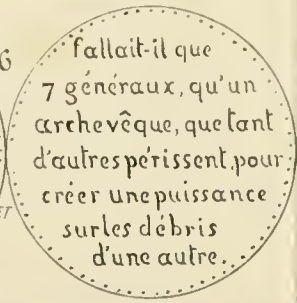 6
fallait-il que
7 généraux, qu'un
archevêque, que tant
d'autres périssent, pour
créer une puissance
sur les débris
d'une autre.
ET